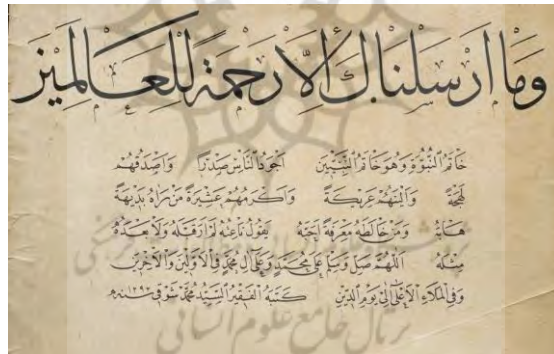 وَمَا أَرْسَلْنَاكَ إِلَّا رَحْمَةً لِلْعَالَمِينَ
خَاتَمُ النُّبُوَّةِ وَهُوَ خَاتَمُ النَّبِيِّينَ أَجْوَدُ النَّاسِ صَدْرًا وَأَصْدَقُهُمْ
لَهْجَةً وَأَلْيَنُهُمْ عَرِيكَةً وَأَكْرَمُهُمْ عَشِيرَةً مَنْ رَآهُ بَدِيهَةً
هَابَهُ وَمَنْ خَالَطَهُ مَعْرِفَةً أَحَبَّهُ يَقُولُ نَاعِتُهُ لَمْ أَرَ قَبْلَهُ وَلَا بَعْدَهُ
مِثْلَهُ اَللّٰهُمَّ صَلِّ وَسَلِّمْ عَلَى مُحَمَّدٍ وَعَلَى آلِ مُحَمَّدٍ فِي الْأَوَّلِينَ وَالْآخِرِينَ
وَفِي الْمَلَاءِ الْأَعْلَى إِلَى يَوْمِ الدِّينِ كَتَبَهُ الْفَقِيرُ السَّيِّدُ مُحَمَّد شَوْقِي
پرتال جامع علوم انسانی